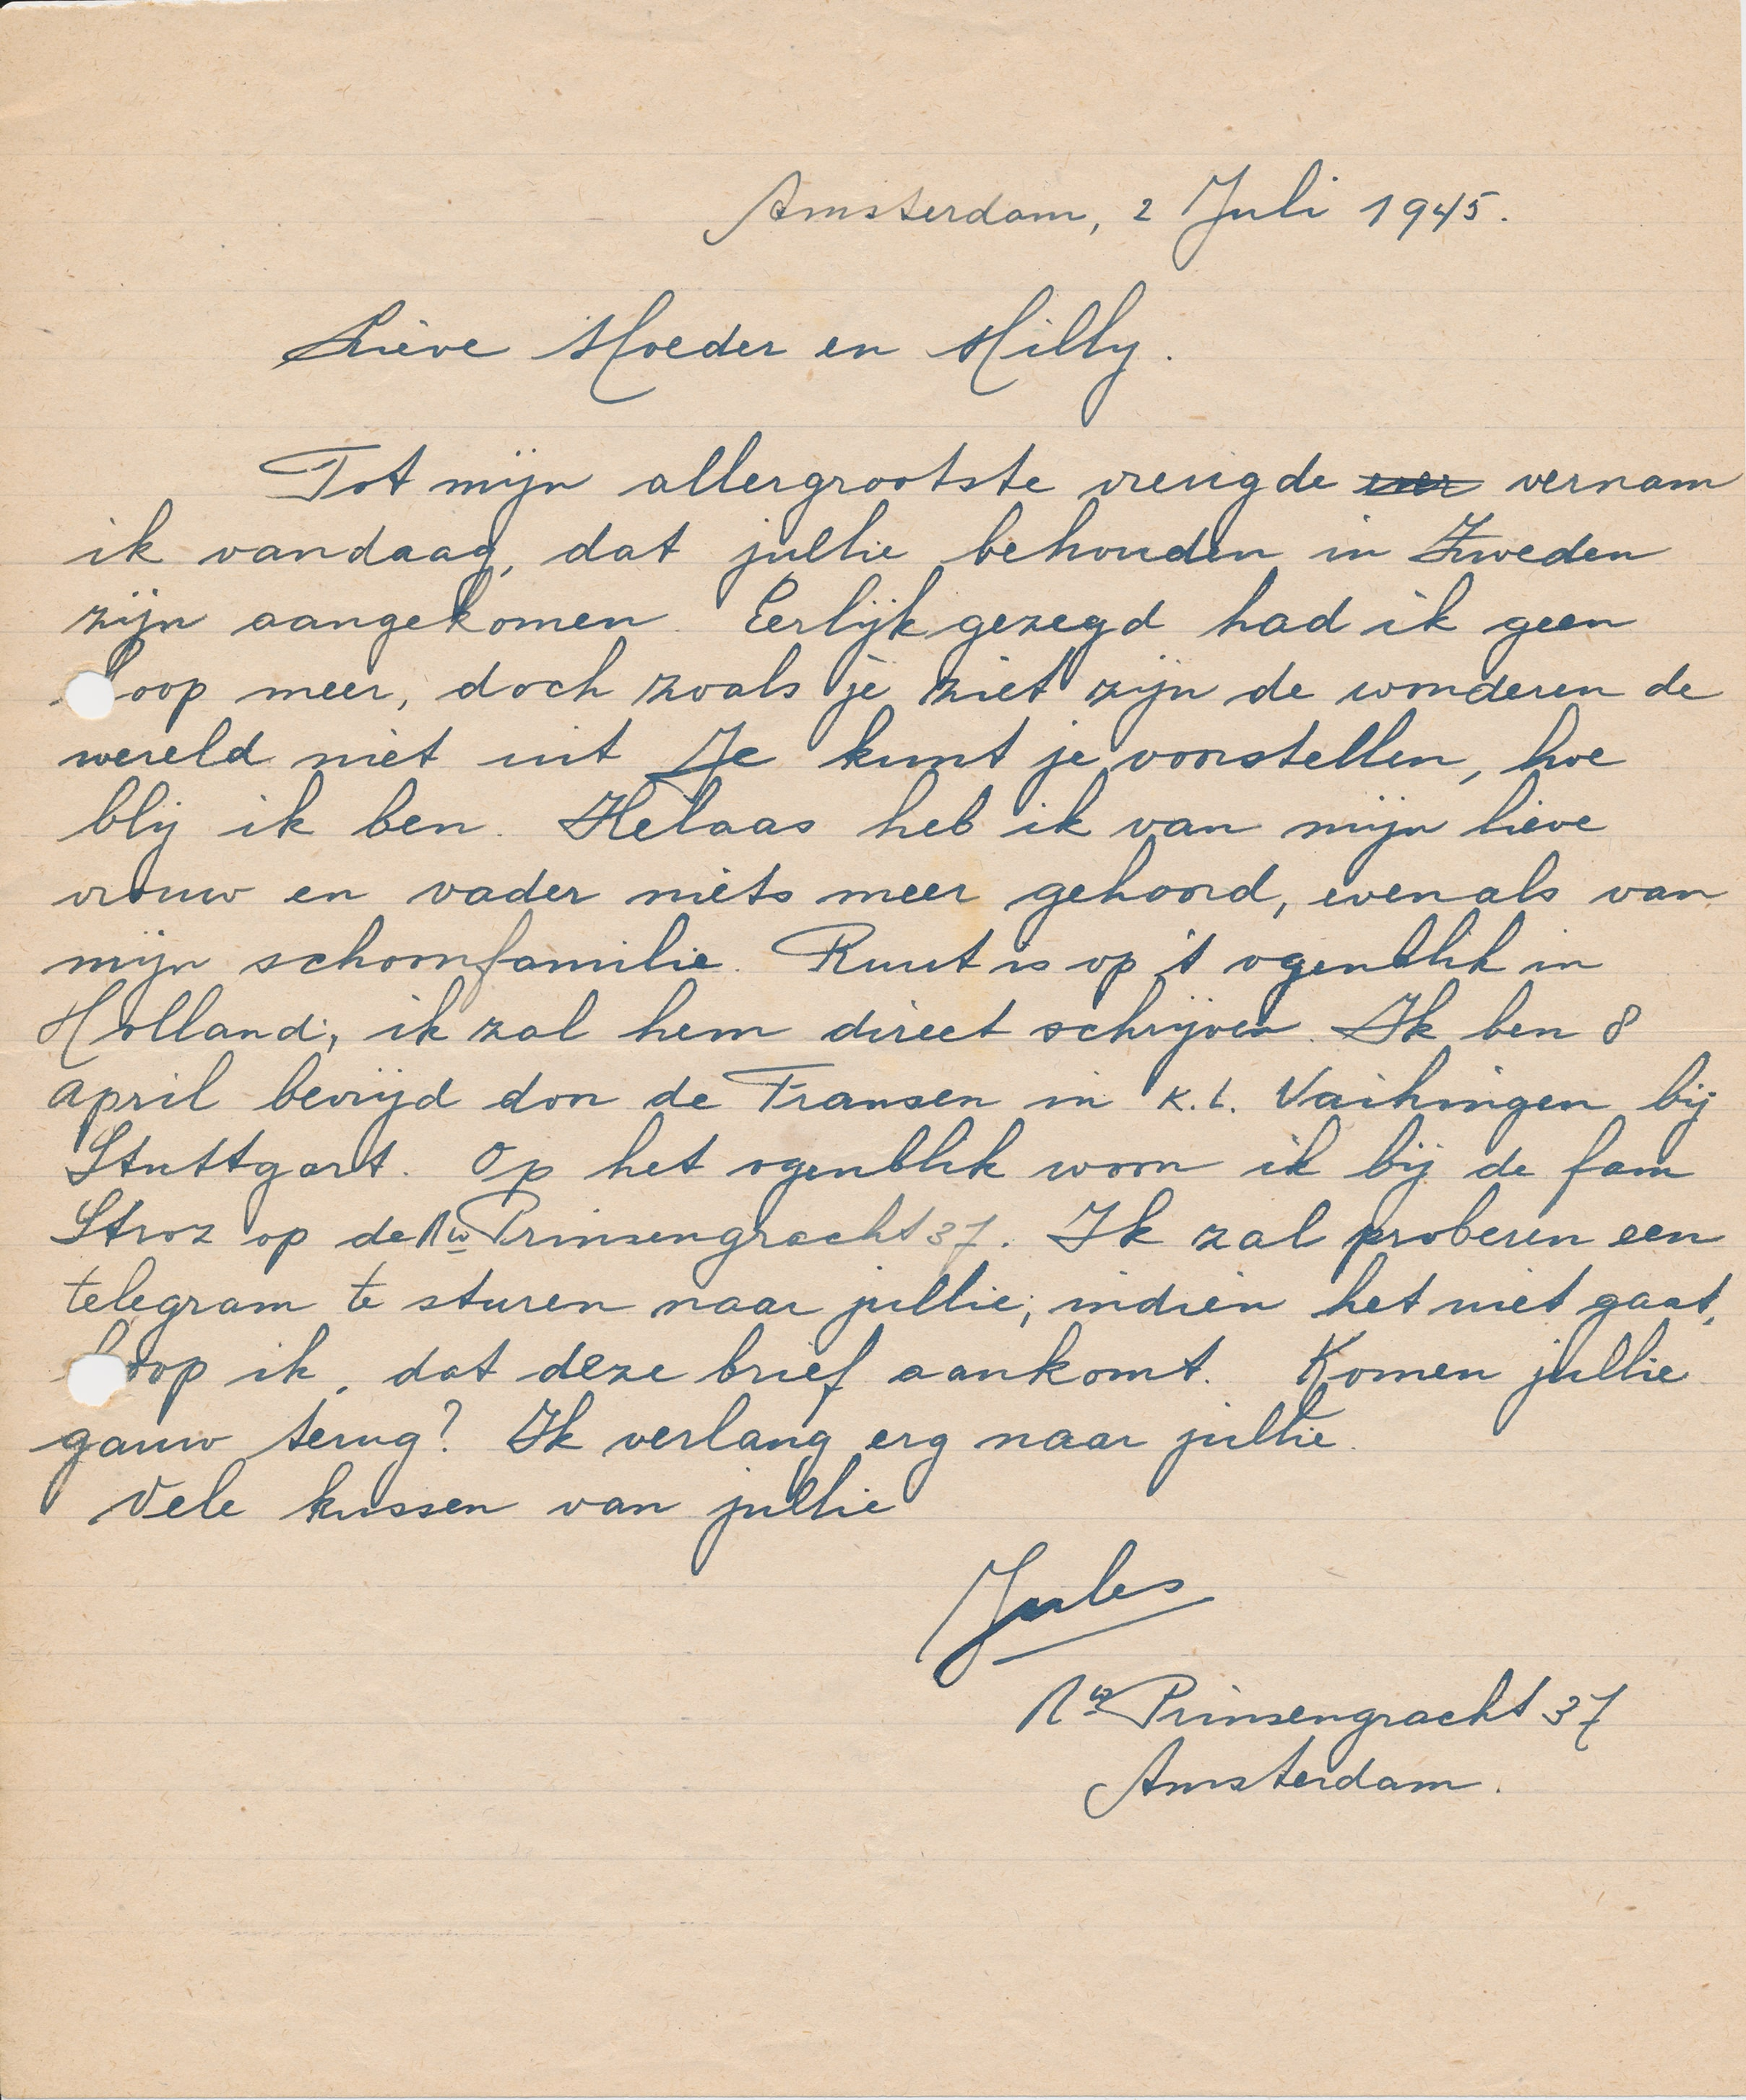 Amsterdam, 2 Juli 1945.
Lieve Moeder en Milly.
Tot mijn allergrootste vreugde ver vernam
ik vandaag, dat jullie behouden in Zweden
zijn aangekomen. Eerlijk gezegd had ik geen
hoop meer, doch zoals je ziet zijn de wonderen de
wereld niet uit Je kunt je voorstellen, hoe
blij ik ben. Helaas heb ik van mijn lieve
vrouw en vader niets meer gehoord, evenals van
mijn schoonfamilie. Ruut is op 't ogenblik in
Holland, ik zal hem direct schrijven. Ik ben 8
April bevrijd door de Fransen in K.L. Vaihingen bij
Stuttgart. Op het ogenblik woon ik bij de fam
Stroz op de Nw Prinsengracht 37. Ik zal proberen een
telegram te sturen naar jullie, indien het niet gaat,
hoop ik, dat deze brief aankomt. Komen jullie
gauw terug? Ik verlang erg naar jullie.
Vele kussen van jullie
Jules
Nw Prinsengracht 37
Amsterdam.